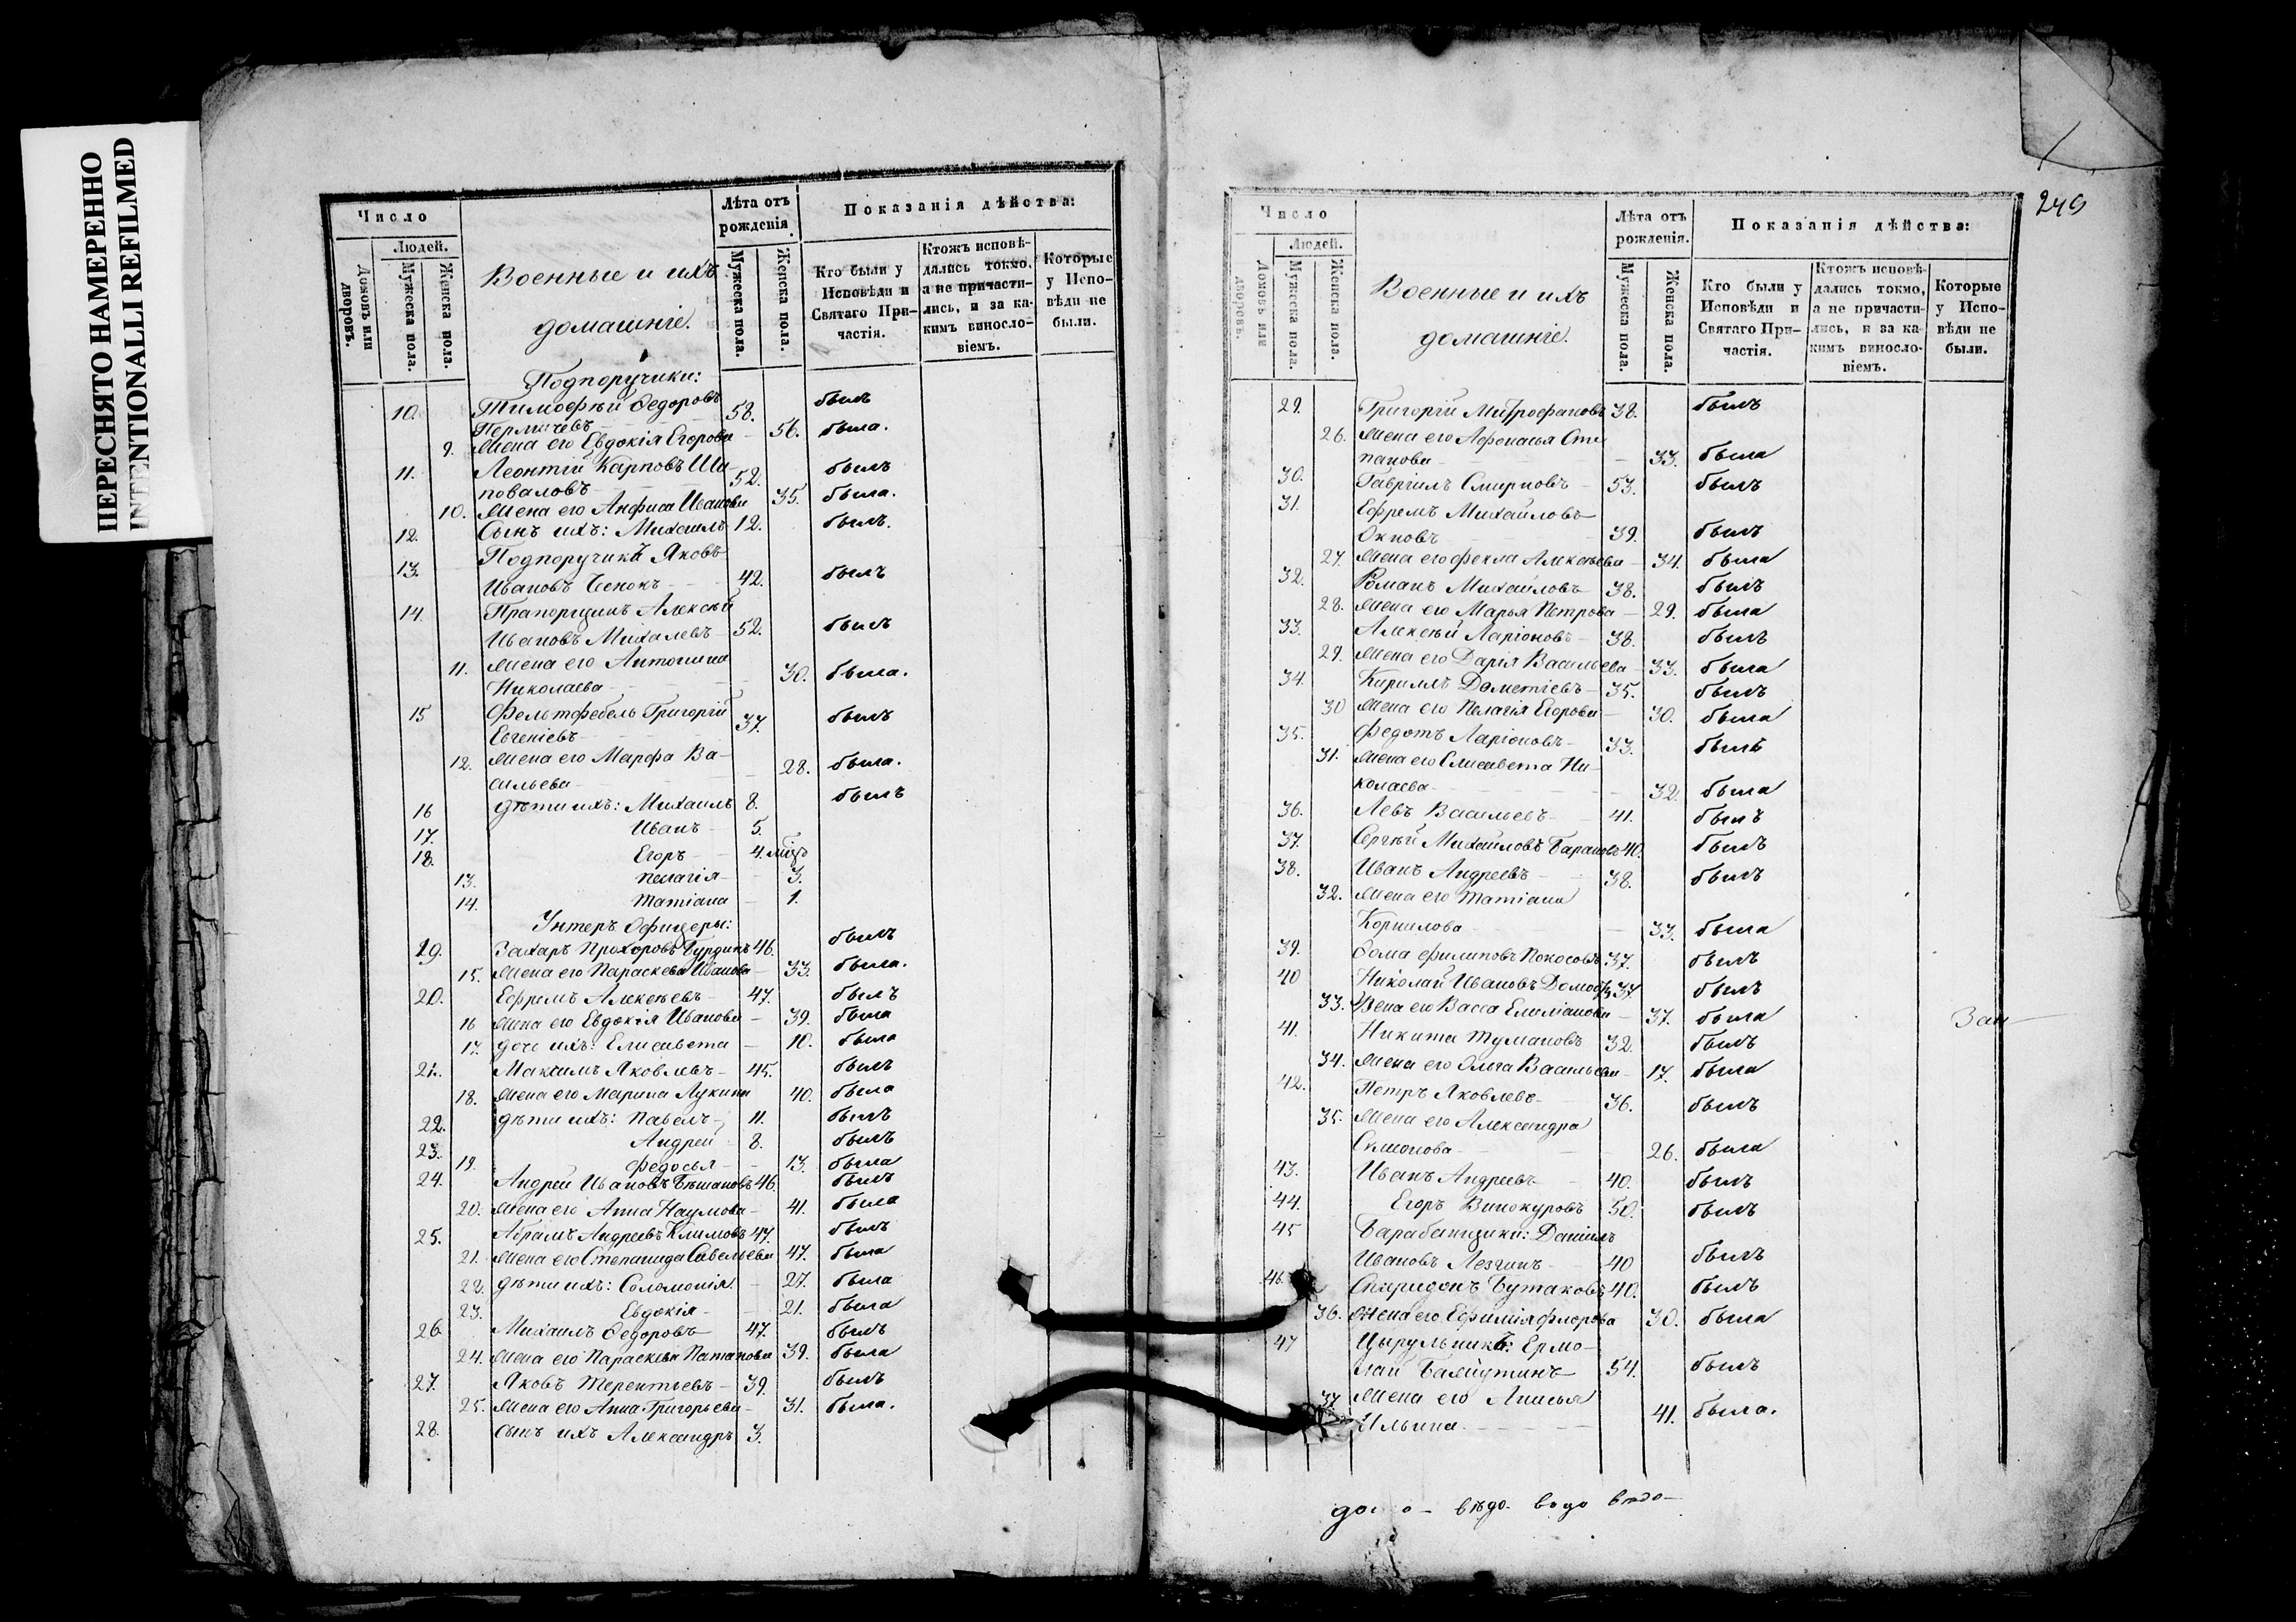 ПЕРЕСНЯТО НАМЕРЕННО
INTENTIONALLI REFILMED
Число
Людей.
Домовъ или дворовъ.
Мужеска пола.
Женска пола.
Военные и ихъ
домашніе.
Лѣта отъ рожденія.
Мужеска пола.
Женска пола.
Показанія дѣйства:
Кто были у Исповѣди и Святаго Причастія.
Ктожъ исповѣдались токмо, а не причастились, и за какимъ винословіемъ.
Которые у Исповѣди не были.
Подпоручики:
10. Тимофѣй Ѳедоровъ 58. былъ
9. Жена его Евдокія Егорова 56. была.
11. Леонтій Карповъ Ша-
поваловъ 52. былъ
10. Жена его Анфиса Иванова 35. была.
12. Сынъ ихъ: Михаилъ 12. былъ.
13. Подпоручикъ Яковъ
Ивановъ 42. былъ
14. Прапорщикъ Алексѣй
Ивановъ Михалевъ 52. былъ
11. Жена его Антонина
Николаева 30. была.
15 Фельтфебель Григорій
Евгеніевъ 37. былъ
12. Жена его Марфа Ва-
сильева 28. была.
16 Дѣти ихъ: Михаилъ 8. былъ
17. Иванъ 5.
18. Егоръ 4.
13. Пелагія 3.
14. Татіана 1.
Унтеръ Офицеры:
19. Захаръ Прохоровъ Бурдинъ 46. былъ
15. Жена его Параскева Иванова 33. была.
20. Ефремъ Алексѣевъ 47. былъ
16 Жена его Евдокія Иванова 39. была
17. Дочь ихъ: Елисавета 10. была
21. Максимъ Яковлевъ 45. былъ
18. Жена его Марина Лукина 40. была
22. Дѣти ихъ: Павелъ 11. былъ
23. Андрей 8. былъ
19. Федосья 13. была
24. Андрей Ивановъ 46. былъ
20. Жена его Анна Наумова 41. была
25. Абрамъ Андреевъ Климовъ 47. былъ
21. Жена его Степанида Савельева 47. была
22. Дѣти ихъ: Соломонія 27. была
23. Евдокія 21. была
26. Михаилъ Ѳедоровъ 47. былъ
24. Жена его Параскева Патапова 39. была
27. Яковъ Терентьевъ 39. былъ
25. Жена его Анна Григорьева 31. была.
28. Сынъ ихъ Александръ 3.
249
Число
Людей.
Домовъ или дворовъ.
Мужеска пола.
Женска пола.
Военные и ихъ
домашніе.
Лѣта отъ рожденія.
Мужеска пола.
Женска пола.
Показанія дѣйства:
Кто были у Исповѣди и Святаго Причастія.
Ктожъ исповѣдались токмо, а не причастились, и за какимъ винословіемъ.
Которые у Исповѣди не были.
29. Григорій Митрофановъ 38. былъ
26. Жена его Афонасья Сте-
панова 33. была
30. Гавріилъ Смирновъ 53. былъ
31. Ефремъ Михайловъ
39. былъ
27. Жена его Фекла Алексѣева 34. была
32. Романъ Михайловъ 38. былъ
28. Жена его Марья Петрова 29. была
33. Алексѣй Ларіоновъ 38. былъ
29. Жена его Дарія Васильева 33. была
34. Кирилъ Дометіевъ 35. былъ
30 Жена его Пелагія Егорова 30. была
35. Федотъ Ларіоновъ 33. былъ
31. Жена его Елисавета Ни-
колаева 32. была
36. Левъ Васильевъ 41. былъ
37. Сергѣй Михайловъ Барановъ 40. былъ
38. Иванъ Андреевъ 38. былъ
32. Жена его Татіана
Корнилова 33. была
39. Ѳома Филиповъ 37. былъ
40 Николай Ивановъ 37. былъ
33. Жена его Васса Емиліанова 37. была
Зап
41. Никита Тумановъ 32. былъ
34. Жена его Ольга Васильева 17. была
42. Петръ Яковлевъ 36. былъ
35. Жена его Александра
Симонова 26. была
43. Иванъ Андреевъ 40. былъ
44. Егоръ Винокуровъ 50. былъ
45 Барабанщики: Даніилъ
Ивановъ Лезгинъ 40 былъ
46. Спиридонъ Бутаковъ 40. былъ
36. Жена его Ефимія Флорова 30. была
47 Цырульникъ: Ермо-
лай 54. былъ
37. Жена его Анисья
Ильина 41. была.